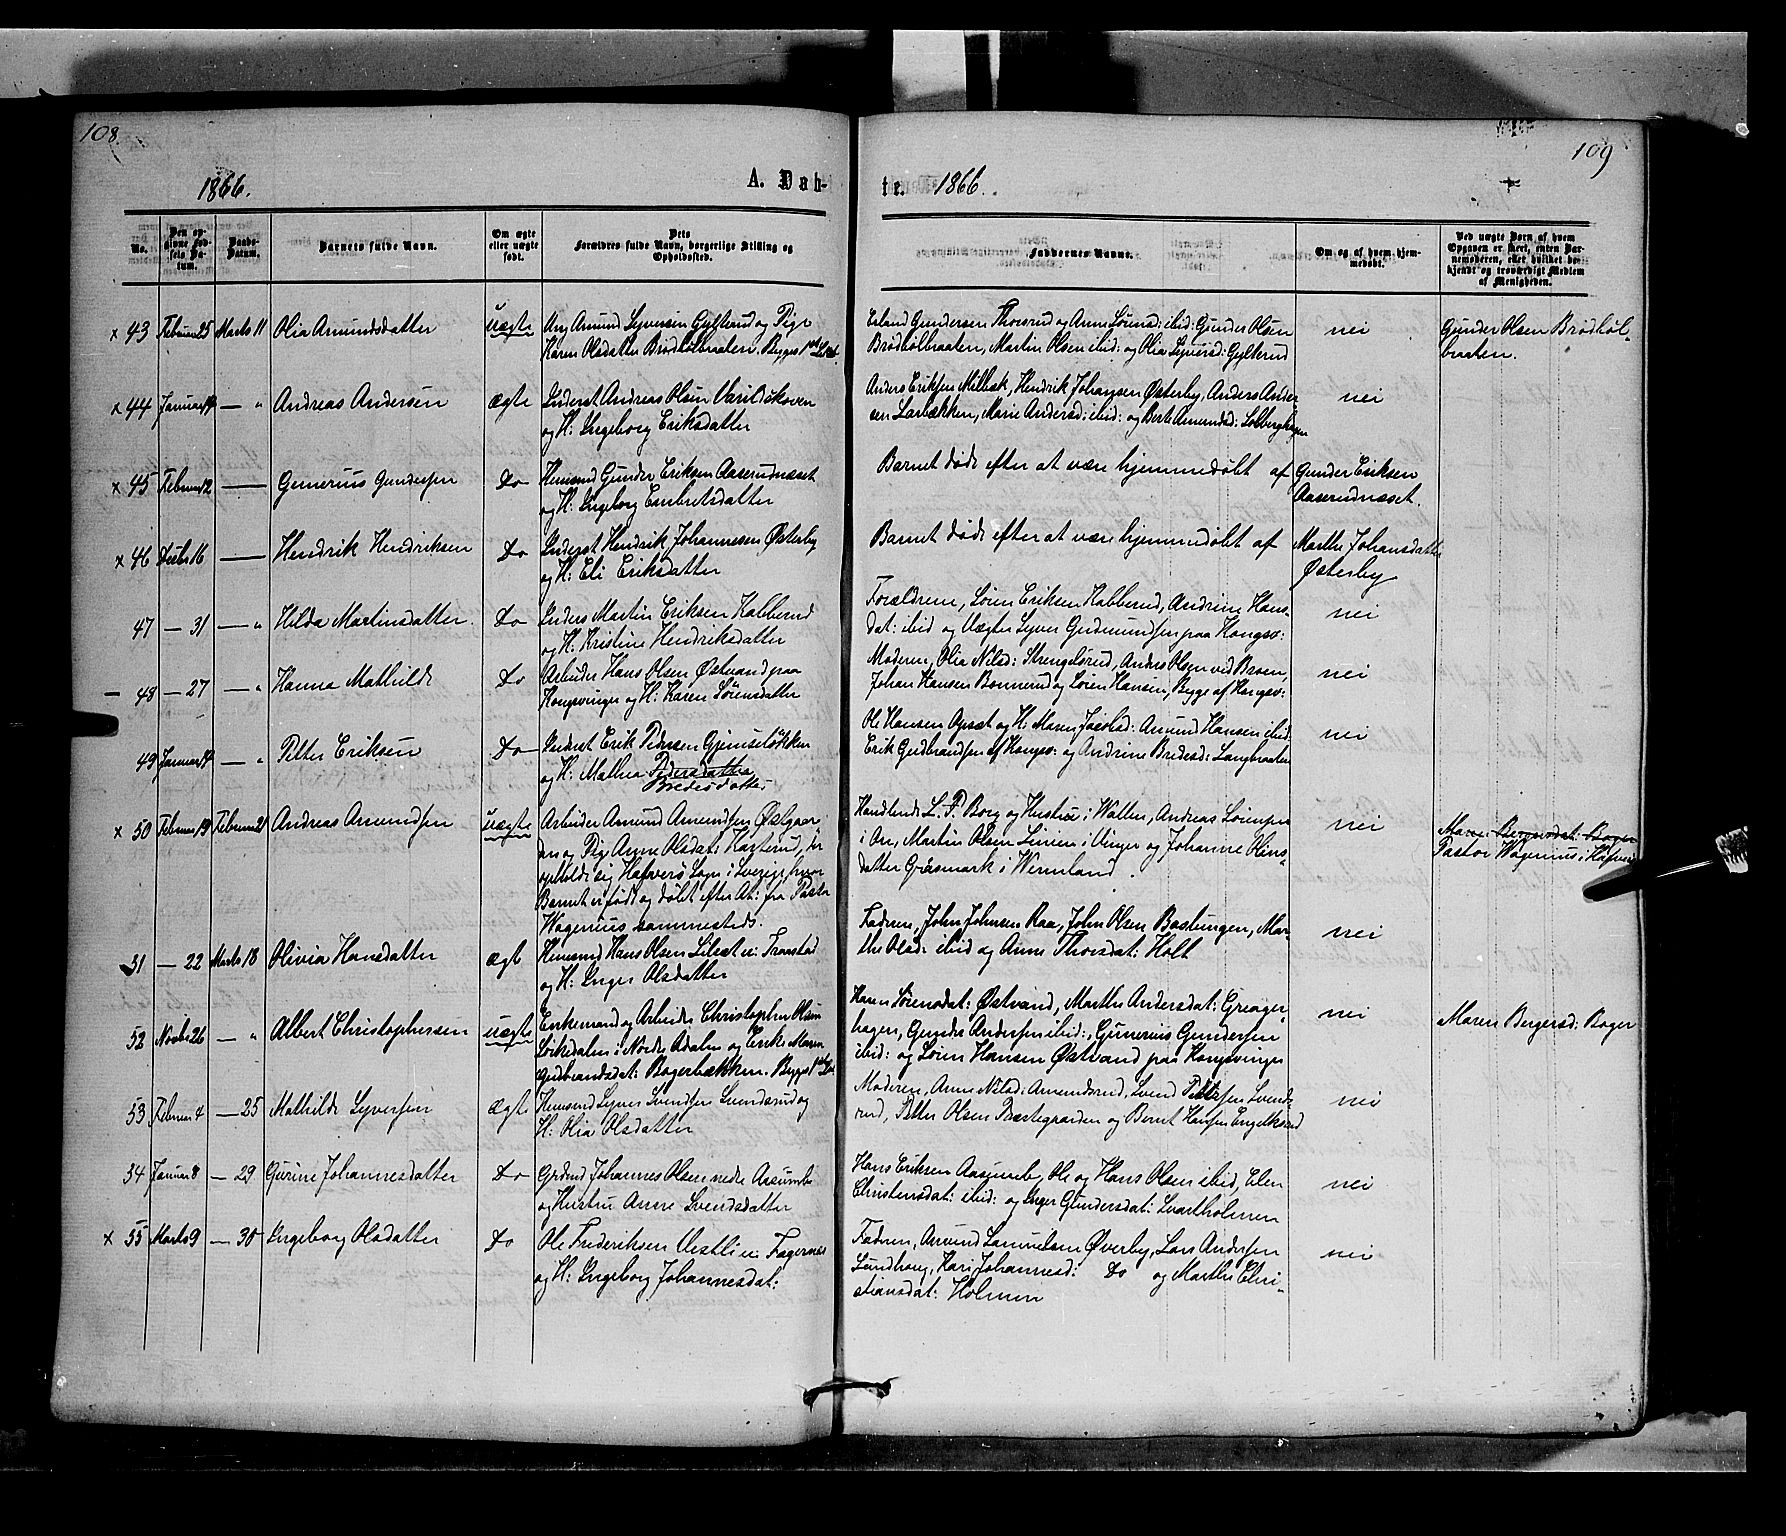 108.
109
1866.
A. Dab-
te.
1866.
No.
Den opgivne Fødsels Datum.
Daabs-Datum.
Barnets fulde Navn.
Om ægte eller uægte født.
Dets Forældres fulde Navn, borgerlige Stilling og Opholdssted.
Faddernes Navne.
Om og af hvem hjemmedøbt.
Ved uægte Børn af hvem Opgaven er skeet, enten Barnemoderen, eller hvilket bekjendt og troværdigt Medlem af Menigheden.
x 43 Februar 25 Marts 11 Olia Amundsdatter uægte
Ung. Amund Syversen Gylterud og Pige
Karen Olsdatter Brødbølbraaten. Begges 1ste
Erland Gundersen Thorsrud og Anne Sørensd: ibid: Gunder Olsen
Brødbølbraaten, Martin Olsen ibid: og Olia Syversd: Gylterud
nei
Gunder Olsen Brødbøl-
braaten.
x 44 Januar 14 — " Andreas Andersen ægte
Inderst Andreas Olsen Varildskoven
og H: Ingeborg Eriksdatter
Anders Eriksen Milbæk, Hendrik Johansen Østerby, Anders Ander
sen Larbækken, Marie Andersd: ibid: og Berte Amundsd: Solberghagen
nei
x 45 Februar 12 — Gunerius Gundersen Do
Huusmd Gunder Eriksen Aaserudnæsset
og H: Ingeborg Embretsdatter
Barnet døde efter at være hjemmedøbt af
Gunder Eriksen
Aaserudnæsset.
x 46 Decbr 16 — Hendrik Hendriksen Do
Inderst Hendrik Johannesen Østerby
og H: Eli Eriksdatter
Barnet døde efter at være hjemmedøbt af
Marthe Johansdatter
Østerby
47 — 31 — " Hilda Martinsdatter. Do
Inders Martin Eriksen Kabberud
og H. Kristine Hendriksdatter
Forældrene, Søren Eriksen Kabberud, Andrine Hans-
dat: ibid og Vægter Syver Gudmundsen paa Kongsv:
nei
48 — 27 — " Hanna Mathilde Do
Arbeider Hans Olsen Østvand paa
Kongsvinger og H: Karen Sørensdatter
Moderen, Olia Nilsd: Strengelsrud, Anders Olsen ved Broen,
Johan Hansen Bonnerud og Søren Hansen, Begge af Kongsv:
nei
49 Januar 14 — " Petter Eriksen Do
Inderst Erik Pedersen Gjemseløkken
og H: Mathea Pedersdatter
Bredesdatter
Ole Hansen Opset og H. Maren Jacobsd: Amund Hansen ibid:
Erik Gudbrandsen af Kongsv: og Andrine Bredesd: Langbraaten
nei
x 50 Februar 19 Februar 21 Andreas Amundsen uægte
Arbeider Amund Amundsen Østgaar-
den og Pige Anne Olsdat: Kastrud,
opholdt sig Hafverö Sogn i Sverige, hvor
Barnet er født og døbt efter At: fra Pastor
Wagenius sammesteds.
Handlende L. P. Borg og Hustrue i Wallen, Andreas
i Are, Martin Olsen Linien i Vinger og Johanne Olins-
datter Gräsmark i Wermland.
nei
Maren Bergersdat: Bager
Pastor Wagenius i Hafverö
51 — 22 Marts 18 Olivia Hansdatter ægt
Huusmd Hans Olsen Lilset u: Transtad
og H: Inger Olsdatter
Faderen, John Johnsen Raa, John Olsen Bastungen, Mar-
the Olsd: ibid og Anne Thorsdat: Holt
nei
52 Novbr 26 — " Albert Christophersen uægte
Enkemand og Arbeider Christopher Olsen
Sørkedalen i Nordre Adalen og Enke Maren
Gudbrandsdat: Bagerbækken. Begges 1ste
Karen Sørensdat: Østvand, Marthe Andersdat: Greager-
hagen, Gunder Andersen ibid:, Gunerius Gundersen
ibid: og Søren Hansen Østvand paa Kongsvinger
nei
Maren Bergersd: Bager
53 Februar 4 — 25 Mathilde Syversen Ægte
Huusmd Syver Svendsen Svendsrud og
H: Olia Olsdatter
Moderen, Anne Nilsd: Amundsrud, Svend Pettersen Svends-
rud, Petter Olsen Præstegaarden og Bernt Hansen Engelksrud
nei
54 Januar 8 — 29 Gurine Johannesdatter Do
Grdmd Johannes Olsen nedre Aasumb
og Hustru Anne Svendsdatter
Hans Eriksen Aasumb, Ole og Hans Olsen ibid, Elen
Christensdat: ibid: og Inger Gundersdat: Svartholmen
nei
x 55 Marts 9 — 30 Ingeborg Olsdatter Do
Ole Frederiksen Vestli u: Fagernes
og H: Ingeborg Johannesdat:
Faderen, Amund Samuelsen Øverby, Lars Andersen
Lundhoug, Kari Johannesd: Do og Marthe Chri-
stiansdat: Holmen
nei